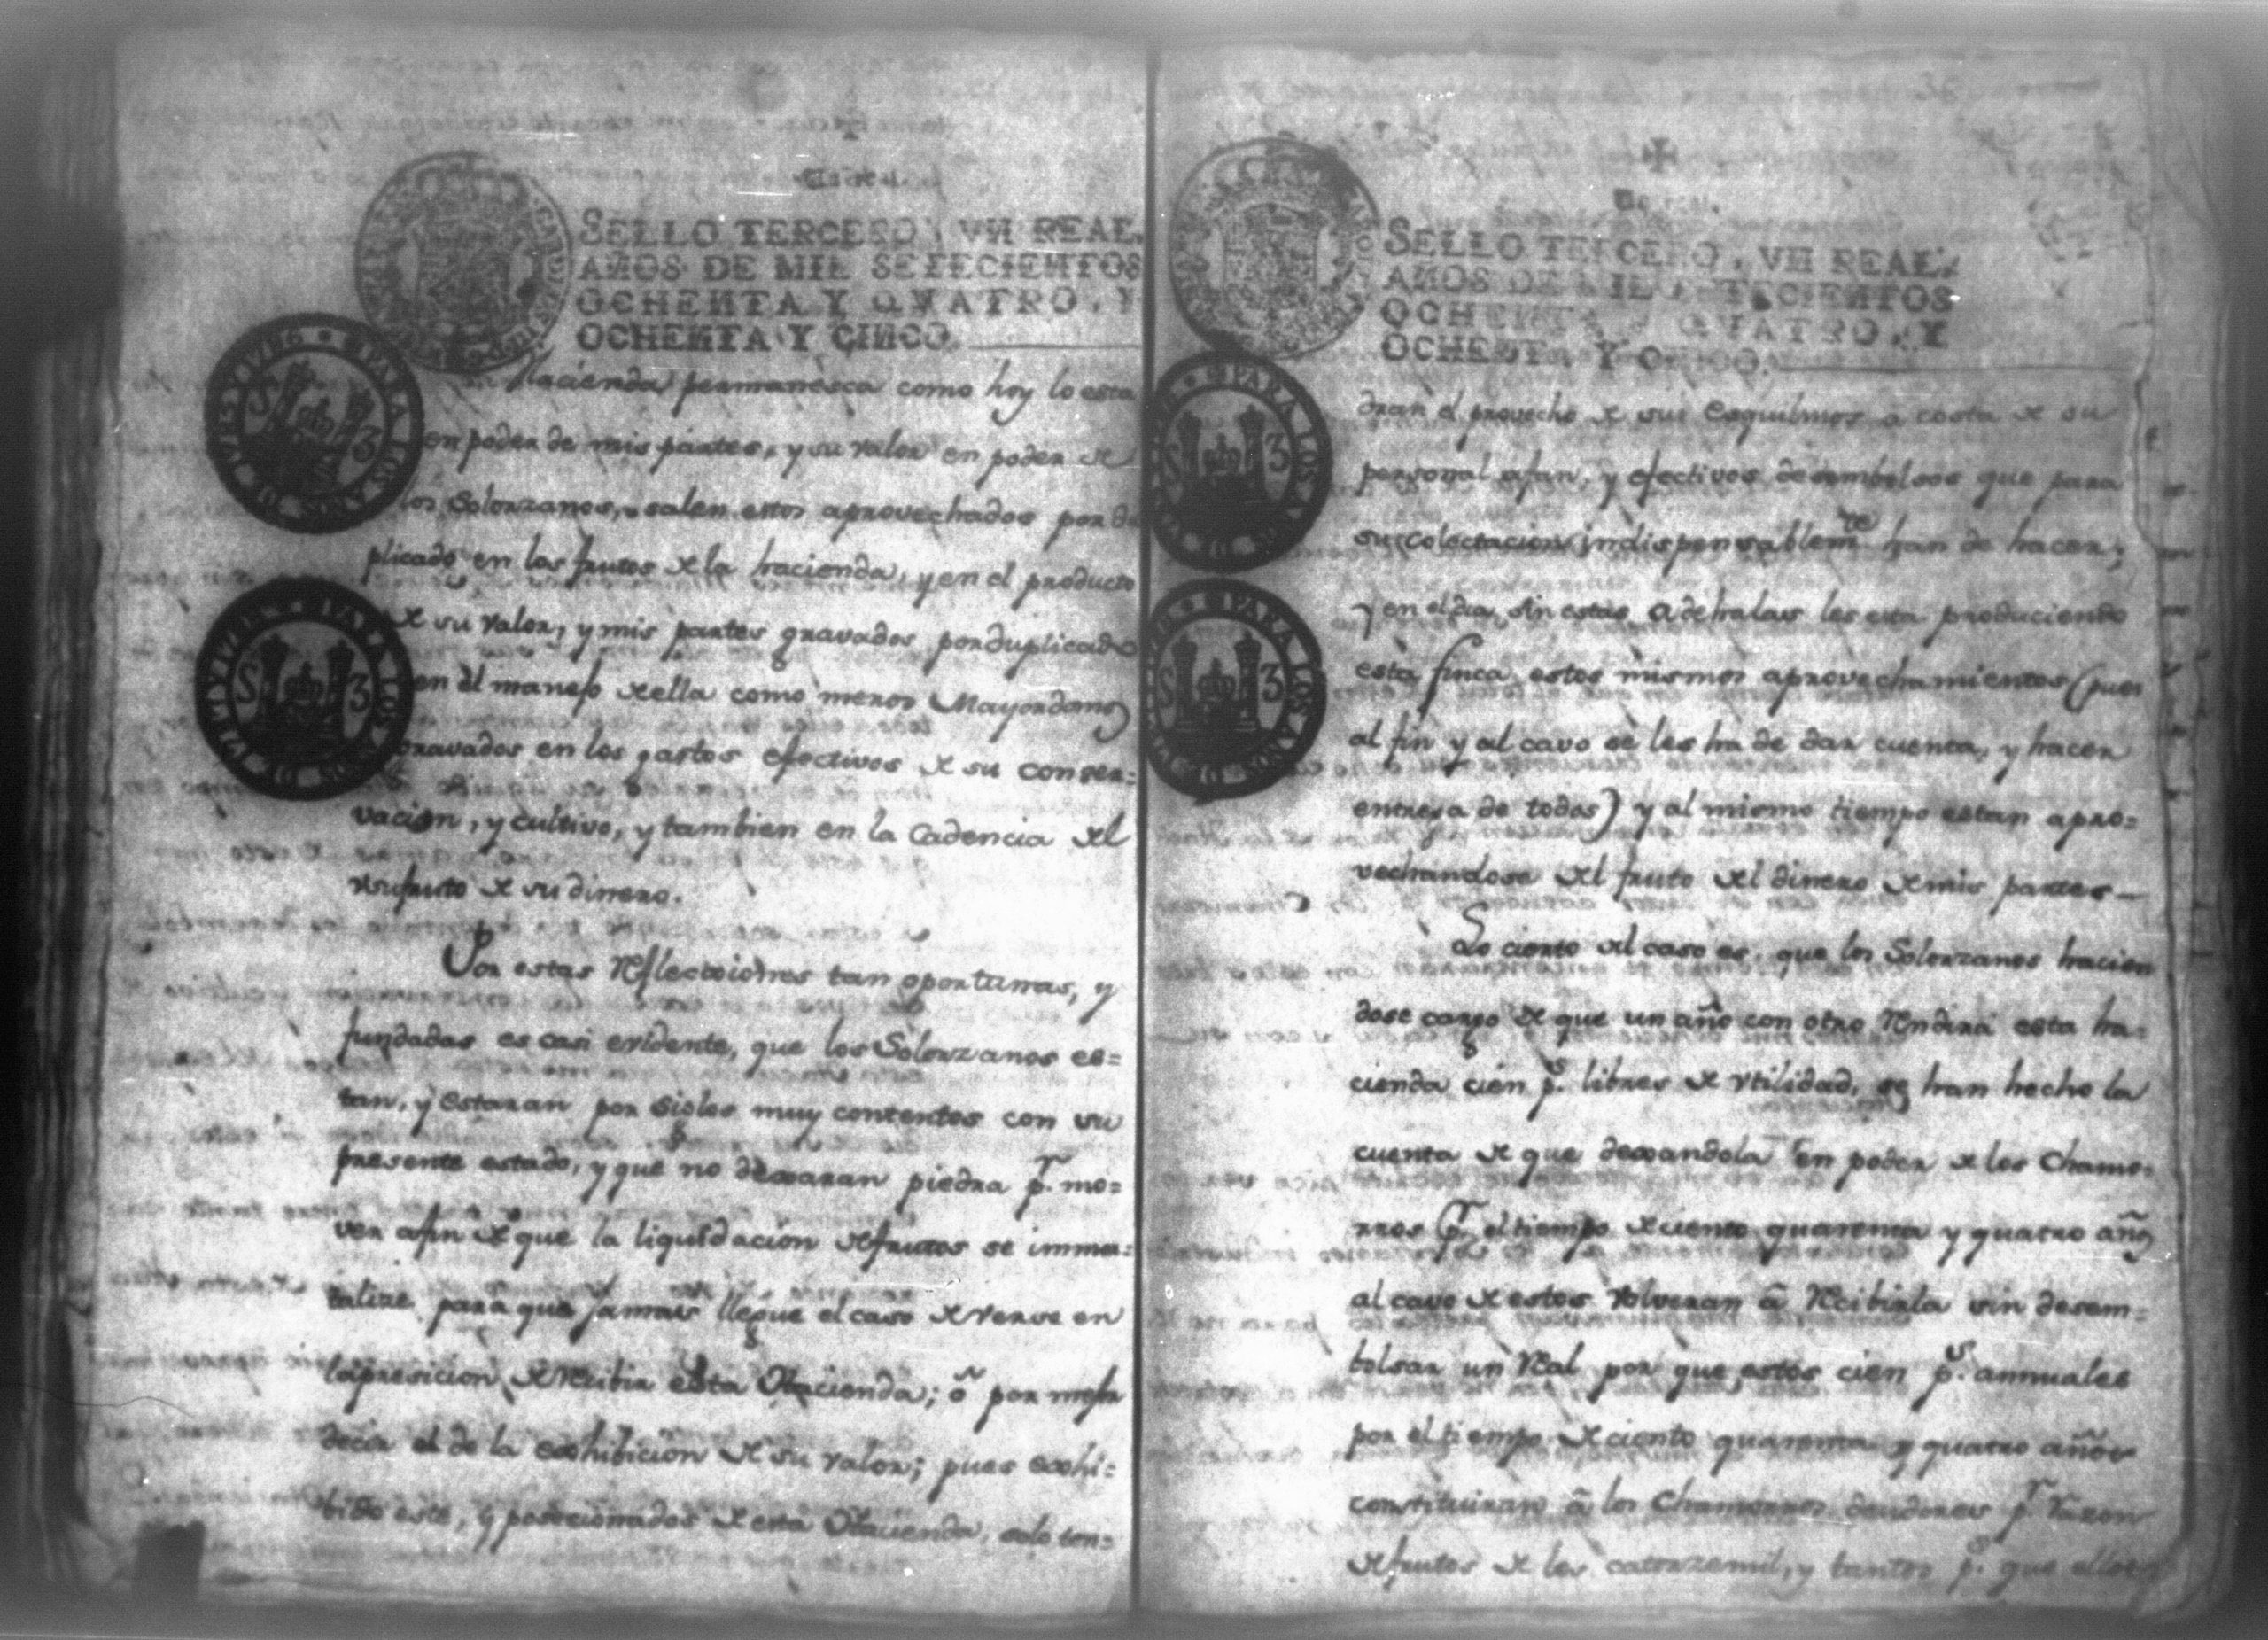 Un real.
SELLO TERCERO, VN REAL,
AÑOS DE MIL SETECIENTOS
OCHENTA Y QVATRO, Y
OCHENTA Y CINCO.
PARA LOS AÑOS DE
S 3
PARA LOS AÑOS DE
S 3
Hacienda permanesca como hoy lo esta
en poder de mis partes, y su valor en poder de
los Solorzanos, salen estos aprovechados por du
plicado en los frutos de la hacienda, y en el producto
de su valor, y mis partes gravados por duplicado
en el manejo de ella como meros Mayordomos
gravados en los gastos efectivos de su conser=
vacion, y cultivo, y tambien en la Cadencia del
usufruto de su dinero.
Por estas Reflecxiones tan oportunas, y
fundadas es casi evidente, que los Solorzanos es=
tan, y estaran por siglos muy contentos con su
presente estado, y que no dexaran piedra pr. mo=
ver afin de que la liquidacion de frutos se immor=
talize para que jamas llegue el caso de verse en
la presicion de Recibir esta Hacienda; ó por mejor
decir el de la exhibicion de su valor; pues exhi=
bido este, y posecionados de esta Hacienda, solo ten=
36
Un real.
SELLO TERCERO, VN REAL,
AÑOS DE MIL SETECIENTOS
OCHENTA Y QVATRO, Y
OCHENTA Y CINCO.
PARA LOS AÑOS DE
S 3
PARA LOS AÑOS DE
S 3
dran el provecho de sus Esquilmos a costa de su
personal afan, y efectivos desembolsos que para
su colectacion indispensablemte han de hacer;
y en el dia sin estas adehalas les esta produciendo
esta finca estos mismos aprovechamientos (pues
al fin y al cavo se les ha de dar cuenta, y hacer
entrega de todos) y al mismo tiempo estan apro=
vechandose del fruto del dinero de mis partes—
Lo cierto del caso es, que los Solorzanos hacien
dose cargo de que un año con otro Rendirá esta ha=
cienda cien ps. libres de utilidad, se han hecho la
cuenta de que dexandola en poder de los Chamo=
rros pr. el tiempo de ciento quarenta y quatro años
al cavo de estos volveran á Recibirla sin desem=
bolsar un Real por que estos cien ps. annuales
por el tiempo de ciento quarenta y quatro años
constituiran á los Chamorros deudores pr. razon
de frutos de los catorzemil, y tantos ps. que ellos